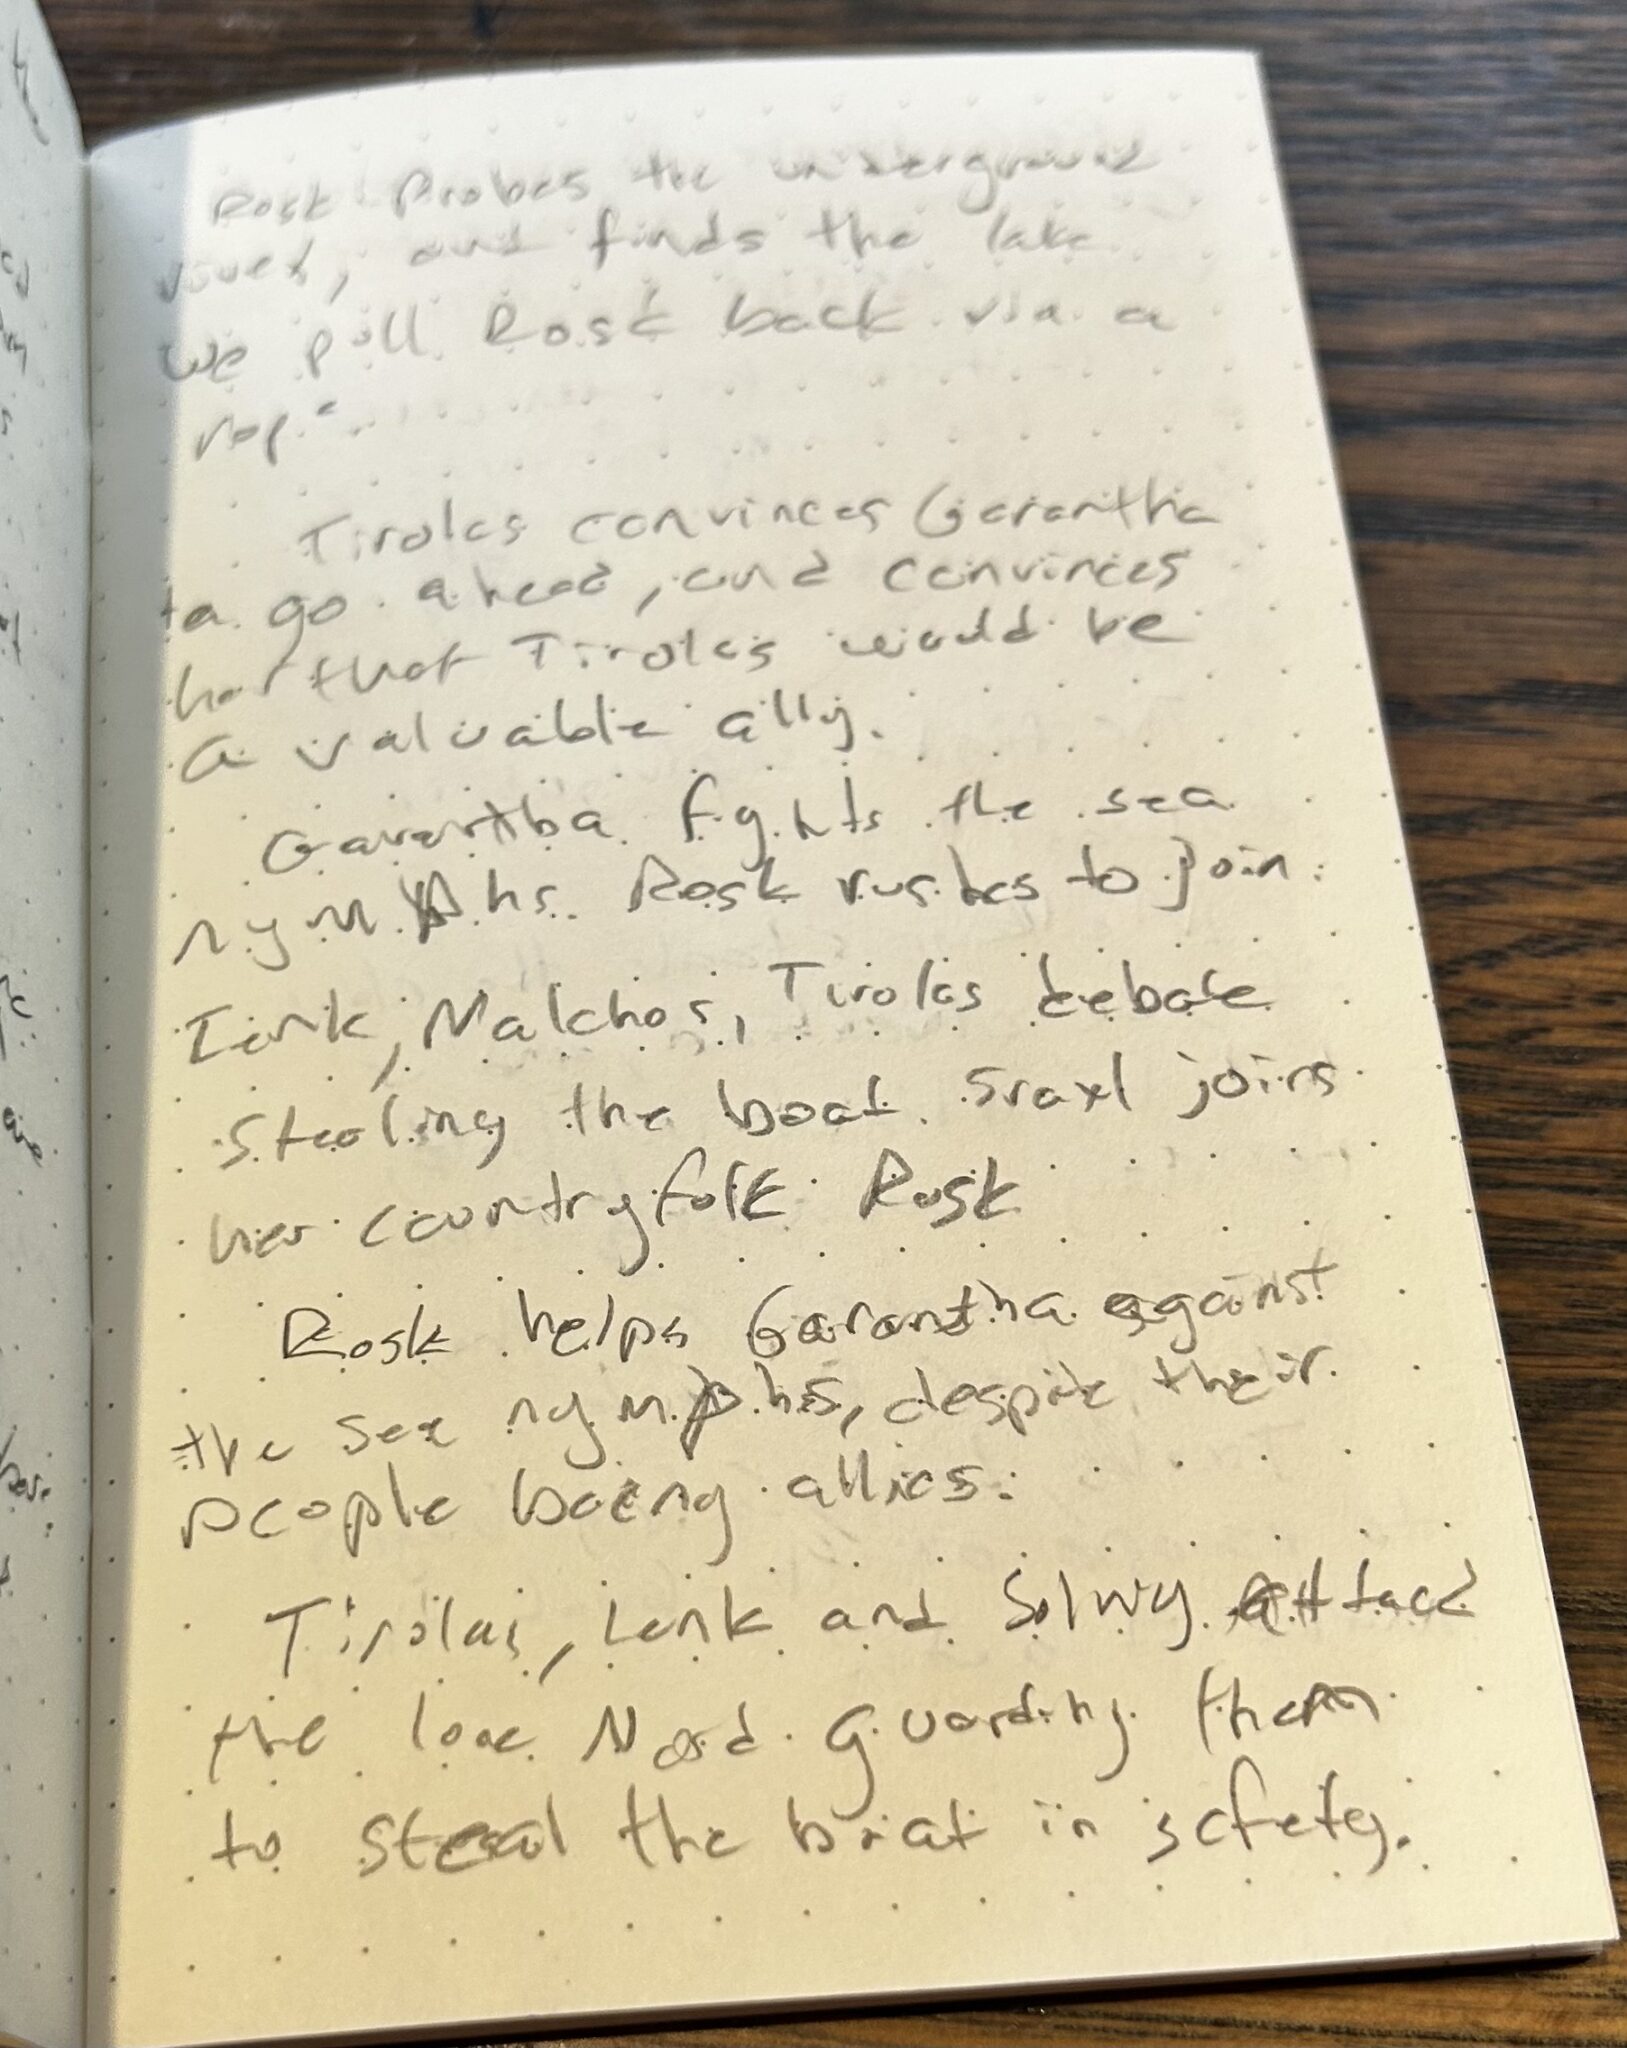 Rosk Probes the underground
river, and finds the lake
we pull Rosk back via a
rope.
Tirolas convinces Garantha
to go ahead, and convinces
her that Tirolas would be
a valuable ally.
Garantha fights the sea
nymphs. Rosk rushes to join.
Ienk, Malchos, Tirolas debate
stealing the boat. Sraxl joins
her countryfolk Rosk
Rosk helps Garantha against
the sea nymphs, despite their
people being allies.
Tirolas, Ienk and Solwy attack
the lone Nord guarding them
to steal the boat in safety.